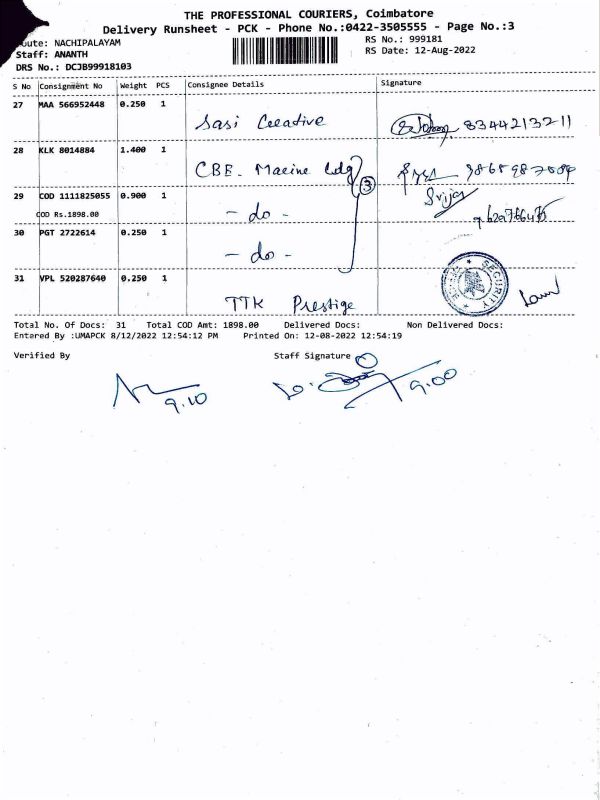 THE PROFESSIONAL COURIERS, Coimbatore
Delivery Runsheet - PCK - Phone No.:0422-3505555 - Page No.:3
Route: NACHIPALAYAM
RS No.: 999181
Staff: ANANTH
RS Date: 12-Aug-2022
DRS No.: DCJB99918103
S No Consignment No Weight PCS Consignee Details Signature
27 MAA 566952448 0.250 1
Sasi Creative 8344213211
28 KLK 8014884 1.400 1
CBE. Marine Ldg 3
29 COD 1111825055 0.900 1
Srija
COD Rs.1898.00 - do -
30 PGT 2722614 0.250 1
- do -
31 VPL 520287640 0.250 1
SECURITY
TTK Prestige
Total No. Of Docs: 31 Total COD Amt: 1898.00 Delivered Docs: Non Delivered Docs:
Entered By :UMAPCK 8/12/2022 12:54:12 PM Printed On: 12-08-2022 12:54:19
Verified By Staff Signature
9.10 9.00